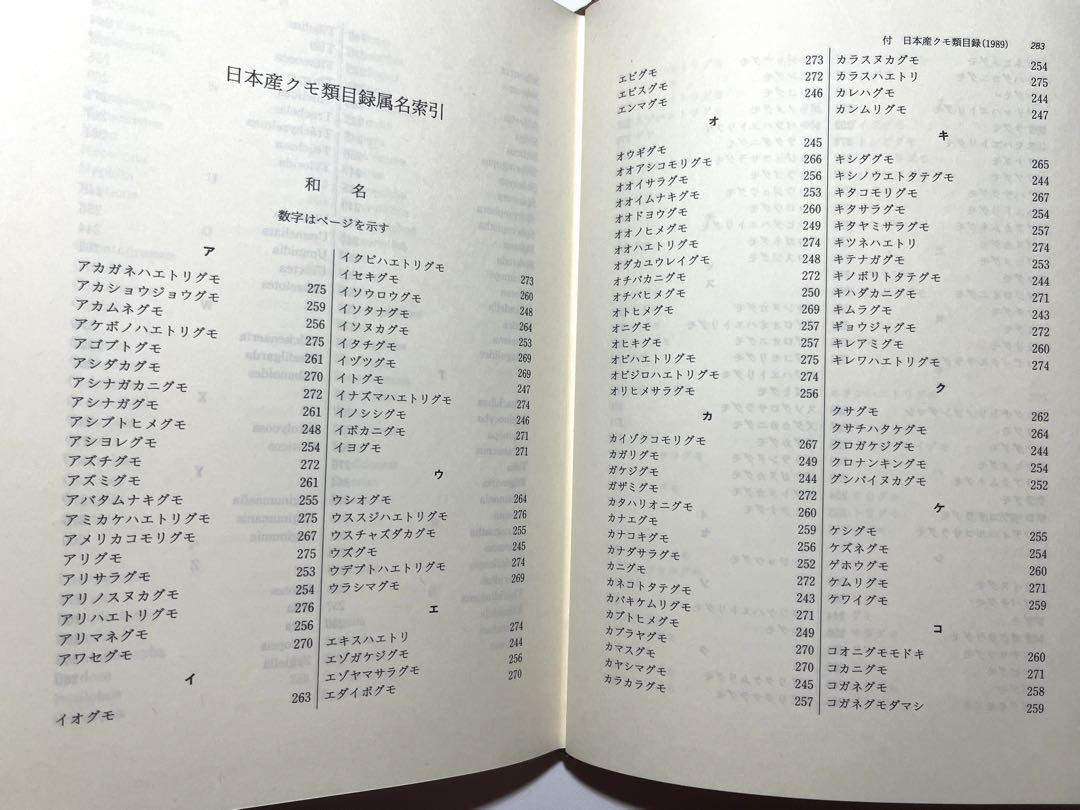 日本産クモ類目録属名索引
和 名
数字はページを示す
ア
アカガネハエトリグモ 275
アカショウジョウグモ 259
アカムネグモ 256
アケボノハエトリグモ 275
アゴブトグモ 261
アシダカグモ 270
アシナガカニグモ 272
アシナガグモ 261
アシブトヒメグモ 248
アシヨレグモ 254
アズチグモ 272
アズミグモ 261
アバタムナキグモ 255
アミカケハエトリグモ 275
アメリカコモリグモ 267
アリグモ 275
アリサラグモ 253
アリノスヌカグモ 254
アリハエトリグモ 276
アリマネグモ 256
アワセグモ 270
イ
イオグモ 263
イクビハエトリグモ 273
イセキグモ 260
イソウロウグモ 248
イソタナグモ 264
イソヌカグモ 253
イタチグモ 269
イヅツグモ 269
イトグモ 247
イナズマハエトリグモ 274
イノシシグモ 246
イボカニグモ 271
イヨグモ 271
ウ
ウシオグモ 264
ウススジハエトリグモ 276
ウスチャズダカグモ 255
ウズグモ 245
ウデブトハエトリグモ 274
ウラシマグモ 269
エ
エキスハエトリ 274
エゾガケジグモ 244
エゾヤマサラグモ 256
エダイボグモ 270
付 日本産クモ類目録(1989) 283
エビグモ 273
エビスグモ 272
エンマグモ 246
オ
オウギグモ 245
オオアシコモリグモ 266
オオイサラグモ 256
オオイムナキグモ 253
オオドヨウグモ 260
オオノヒメグモ 249
オオハエトリグモ 274
オダカユウレイグモ 248
オチバカニグモ 272
オチバヒメグモ 250
オトヒメグモ 269
オニグモ 257
オヒキグモ 257
オビハエトリグモ 275
オビジロハエトリグモ 274
オリヒメサラグモ 256
カ
カイゾクコモリグモ 267
カガリグモ 249
ガケジグモ 244
ガザミグモ 272
カタハリオニグモ 260
カナエグモ 259
カナコキグモ 256
カナダサラグモ 252
カニグモ 272
カネコトタテグモ 243
カバキケムリグモ 271
カブトヒメグモ 249
カブラヤグモ 270
カマスグモ 270
カヤシマグモ 245
カラカラグモ 257
カラスヌカグモ 254
カラスハエトリ 275
カレハグモ 244
カンムリグモ 247
キ
キシダグモ 265
キシノウエトタテグモ 244
キタコモリグモ 267
キタサラグモ 254
キタヤミサラグモ 257
キツネハエトリ 274
キテナガグモ 253
キノボリトタテグモ 244
キハダカニグモ 271
キムラグモ 243
ギョウジャグモ 272
キレアミグモ 260
キレワハエトリグモ 274
ク
クサグモ 262
クサチハタケグモ 264
クロガケジグモ 244
クロナンキングモ 254
グンバイヌカグモ 252
ケ
ケシグモ 255
ケズネグモ 254
ゲホウグモ 260
ケムリグモ 271
ケワイグモ 259
コ
コオニグモモドキ 260
コカニグモ 271
コガネグモ 258
コガネグモダマシ 259